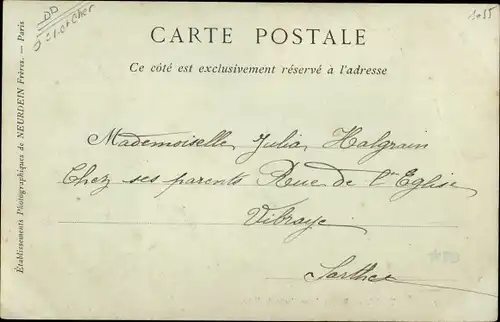 CARTE POSTALE
Ce côté est exclusivement réservé à l'adresse
Mademoiselle Julia Halgrain
Chez ses parents Rue de l'Eglise
Vibraye
Sarthe
Établissements Photographiques de NEURDEIN Frères. — Paris